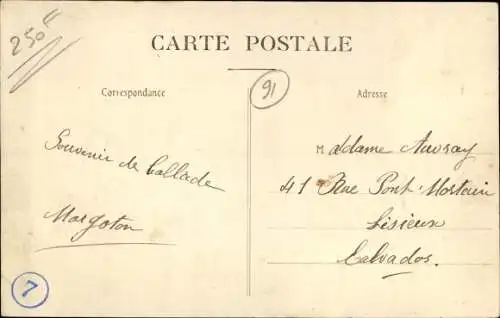 250F
CARTE POSTALE
91
Correspondance
Adresse
Souvenir de ballade
Margoton
Madame Auvray
41 Rue Pont-Mortain
Lisieux
Calvados.
7